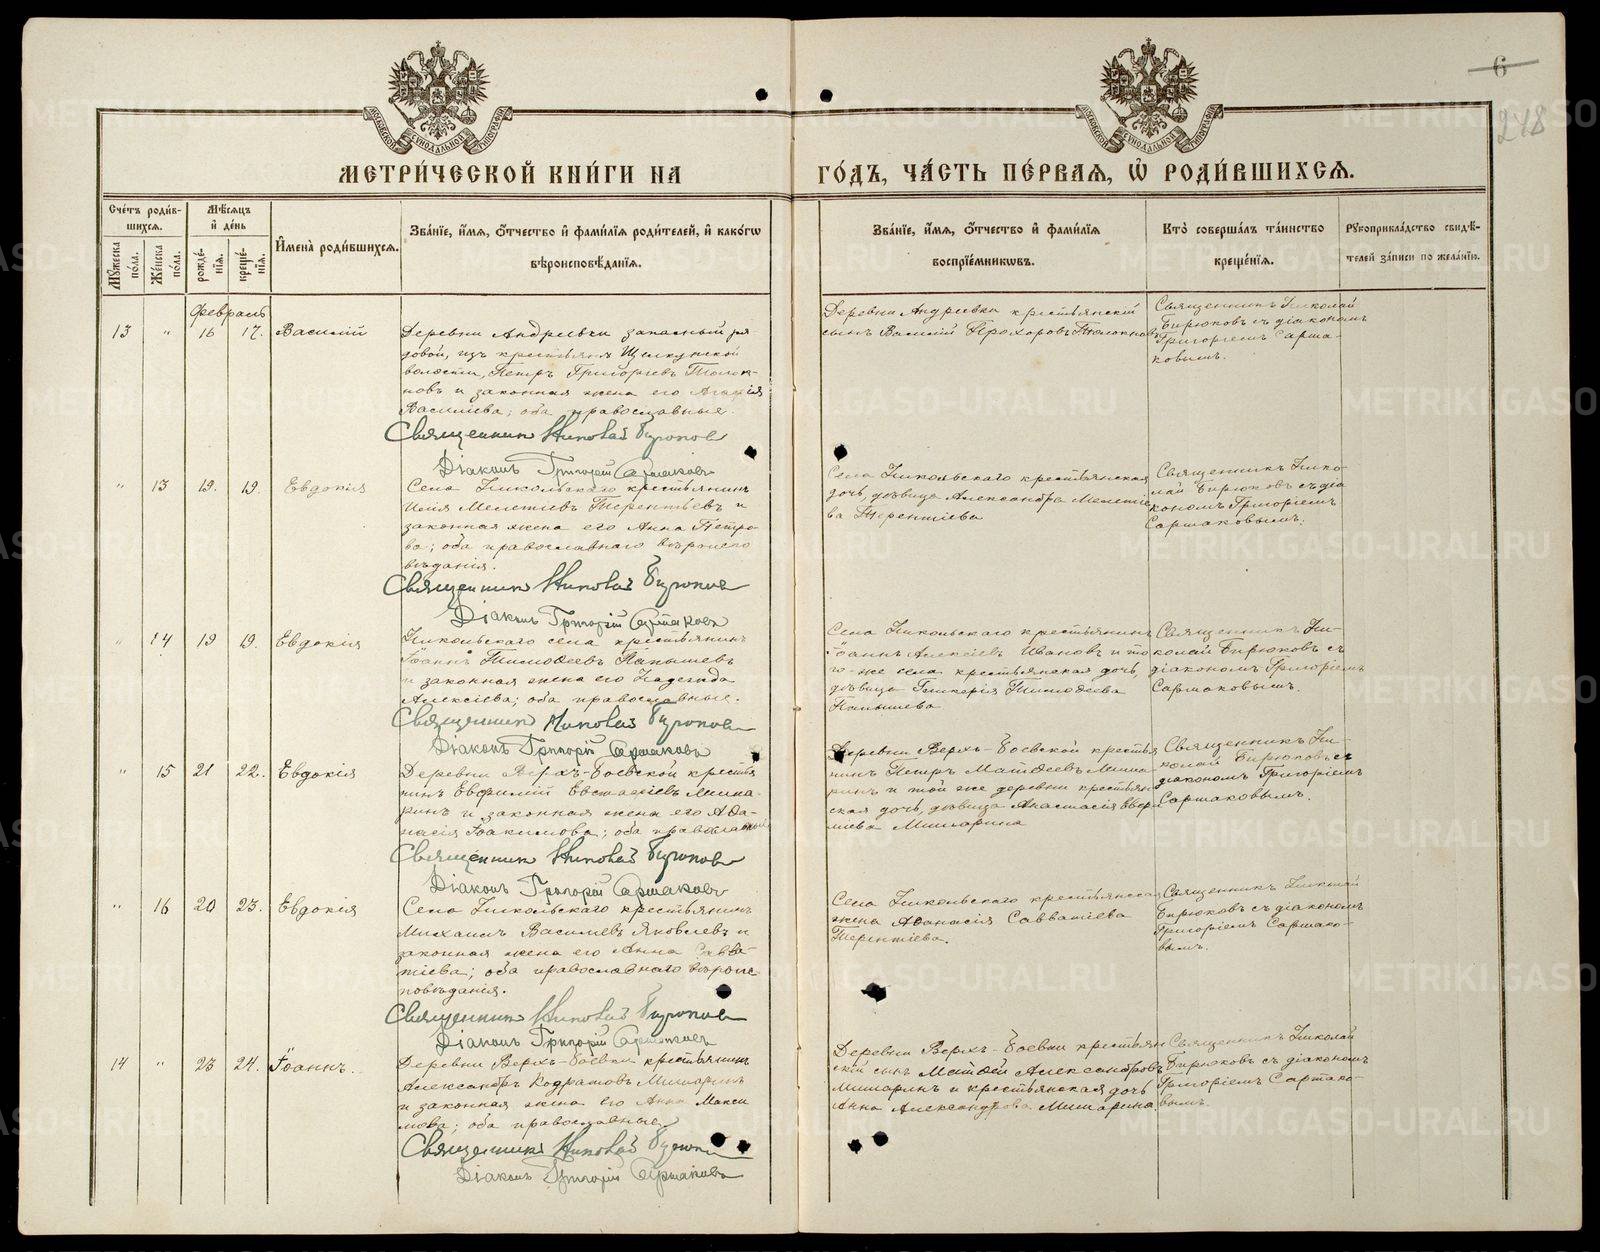 6
218
МОСКОВСКОЙ СѴНОДАЛЬНОЙ ТИПОГРАФІИ
МОСКОВСКОЙ СѴНОДАЛЬНОЙ ТИПОГРАФІИ
МЕТРИ́ЧЕСКОЙ КНИ́ГИ НА ГО́ДЪ, ЧА́СТЬ ПЕ́РВАЯ, Ѽ РОДИ́ВШИХСЯ.
Сче́тъ роди́в-
шихся.
Му́жеска по́ла.
Же́нска по́ла.
Мѣ́сяцъ и́ де́нь
рожде́-нія.
креще́-нія.
И҆мена̀ роди́вшихся.
Зва́ніе, и҆́мя, ѻ҆́тчество и҆ фами́лія роди́телей, и҆ како́гѡ
вѣроисповѣ́данія.
Зва́ніе, и҆́мя, ѻ҆́тчество и҆ фами́лія
воспріе́мниковъ.
Кто̀ соверша́лъ та́инство
креще́нія.
Рꙋкоприкла́дство свидѣ́-
телей за́писи по жела́нію.
Февраль
13 " 16 17. Василій
Деревни Андреевки запасный ря
довой, изъ крестьянъ Щелкунской
волости, Петръ Григорьевъ Толок-
новъ и законная жена его Агафія
Василіева; оба православные.
Священник Николай Бирюков
Діаконъ Григорій Саршаковъ
Деревни Андреевки крестьянскій
сынъ Василій Прохоровъ Толокновъ
Священникъ Николай
Бирюковъ съ діакономъ
Григоріемъ Сарша-
ковымъ.
" 13 19. 19. Евдокія
Села Никольскаго крестьянинъ
Илія Мелетіевъ Терентьевъ и
законная жена его Анна Петро-
ва; оба православнаго вѣроиспо
вѣданія.
Священник Николай Бирюков
Діаконъ Григорій Саршаковъ
Села Никольскаго крестьянская
дочь, дѣвица Александра Мелетіе
ва Терентіева
Священникъ Нико-
лай Бирюковъ съ діа
кономъ Григоріемъ
Саршаковымъ.
" 14 19 19. Евдокія
Никольскаго села крестьянинъ
Іоаннъ Тимоѳеевъ Папышевъ
и законная жена его Надежда
Алексіева; оба православные.
Священник Николай Бирюков
Діаконъ Григорій Саршаковъ
Села Никольскаго крестьянинъ
Іоаннъ Алексіевъ Ивановъ и то
го-же села крестьянская дочь,
дѣвица Гликерія Тимоѳеева
Папышева
Священникъ Ни-
колай Бирюковъ съ
діакономъ Григоріемъ
Саршаковымъ.
" 15 21 22. Евдокія
Деревни Верхъ-Боевской крестья
нинъ Евѳимій Евстаѳіевъ Миша-
ринъ и законная жена его Аѳа-
насія Іоакимова; оба православные
Священник Николай Бирюков
Діаконъ Григорій Саршаковъ
Деревни Верхъ-Боевской крестья
нинъ Петръ Матѳеевъ Миша-
ринъ и той же деревни крестьян
ская дочь, дѣвица Анастасія
Мишарина
Священникъ Ни-
колай Бирюковъ съ
діакономъ Григоріемъ
Саршаковымъ.
" 16 20 23. Евдокія
Села Никольскаго крестьянинъ
Михаилъ Василіевъ Яковлевъ и
законная жена его Анна Савва-
тіева; оба православнаго вѣроис-
повѣданія.
Священник Николай Бирюков
Діаконъ Григорій Саршаковъ
Села Никольскаго крестьянская
жена Аѳанасія Савватіева
Терентіева.
Священникъ Николай
Бирюковъ съ діакономъ
Григоріемъ Саршако-
вымъ.
14 " 23 24. Іоаннъ.
Деревни Верхъ-Боевки крестьянинъ
Александръ Кодратовъ Мишаринъ
и законная жена его Анна Макси
мова; оба православные.
Священник Николай
Діаконъ Григорій Саршаковъ
Деревни Верхъ-Боевки крестьян
скій сынъ Матѳей Александровъ
Мишаринъ и крестьянская дочь
Анна Александрова Мишарина
Священникъ Николай
Бирюковъ съ діакономъ
Григоріемъ Саршако-
вымъ.
METRIKI.GASO-URAL.RU